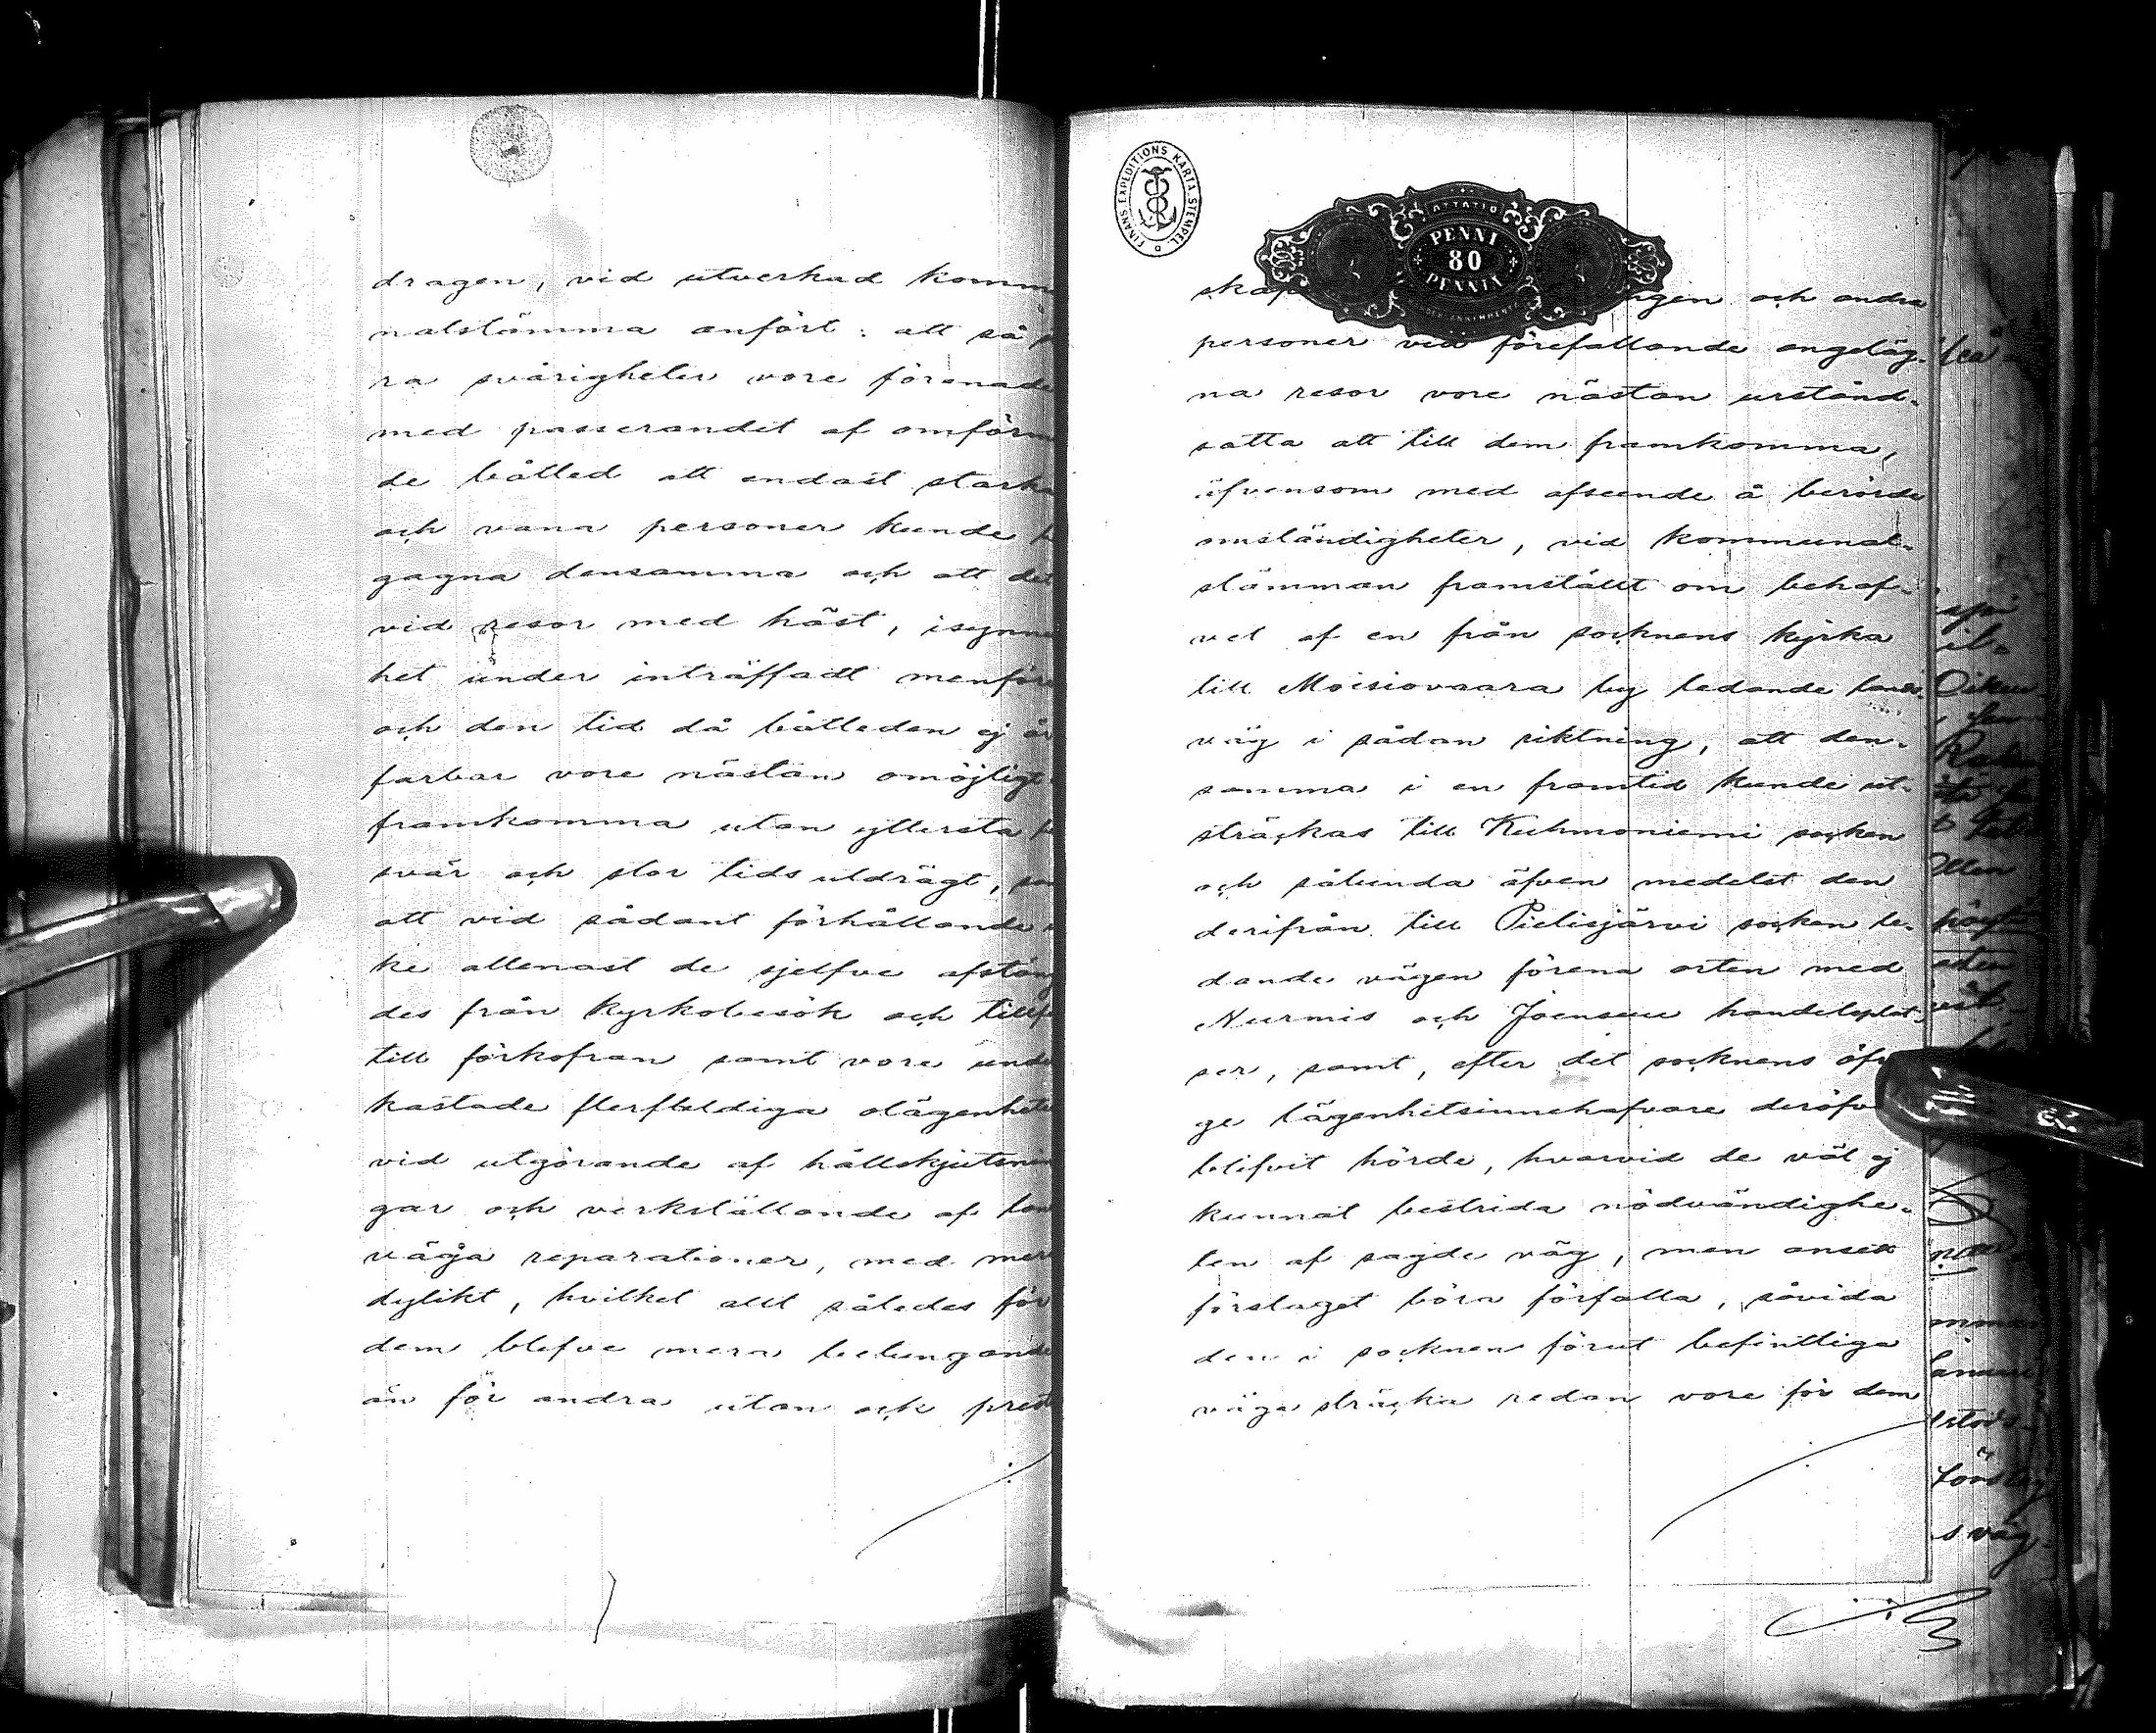 dragen, vid utverkad komm
nalstämma anfört: att så
ra svårigheter vore förenade
med passerandet af omförm
de båtled att endast starka
och vana personer kunde
gagna densamma och att det
vid resor med häst, isynner
het under inträffadt menföre
och den tid då båtleden ej är
farbar vore nästan omöjligt
framkomma utan yttersta
svår och stor tids utdrägt,
att vid sådant förhållande
ke allenast de sjelfve afstäng
des från kyrkobesök och tillf
till förkofran samt vore unde
kastade flerfaldiga olägenhete
vid utgörande af hållskjutsnin
gar och verkställande af lan
väga reparationer, med mer
dylikt, hvilket allt således för
dem blefve mera betungande
än för andra utan ock prest
FINANS EXPEDITIONS KARTA STEMPEL
PENNI
80
PENNIÄ
skap ngen och andra
personer vid förefallande angeläg-
na resor vore nästan urstånd-
satta att till dem framkomma,
äfvensom med afseende å berörde
omständigheter, vid kommunal-
stämman framstält om behof-
vet af en från socknens kyrka
till Moisiovaara by ledande lands-
väg i sådan riktning, att den-
samma i en framtid kunde ut-
sträckas till Kuhmoniemi socken
och sålunda äfven medelst den
derifrån till Pielisjärvi socken le-
dande vägen förena orten med
Nurmis och Joensuu handelsplat-
ser, samt, efter det socknens öfv
ge lägenhetsinnehafvare deröfv
blifvit hörde, hvarvid de väl ej
kunnat bestrida nödvändighe-
ten af sagde väg, men ansett
förslaget böra förfalla, såvida
den i socknen förut befintliga
väga sträcka redan vore för dem